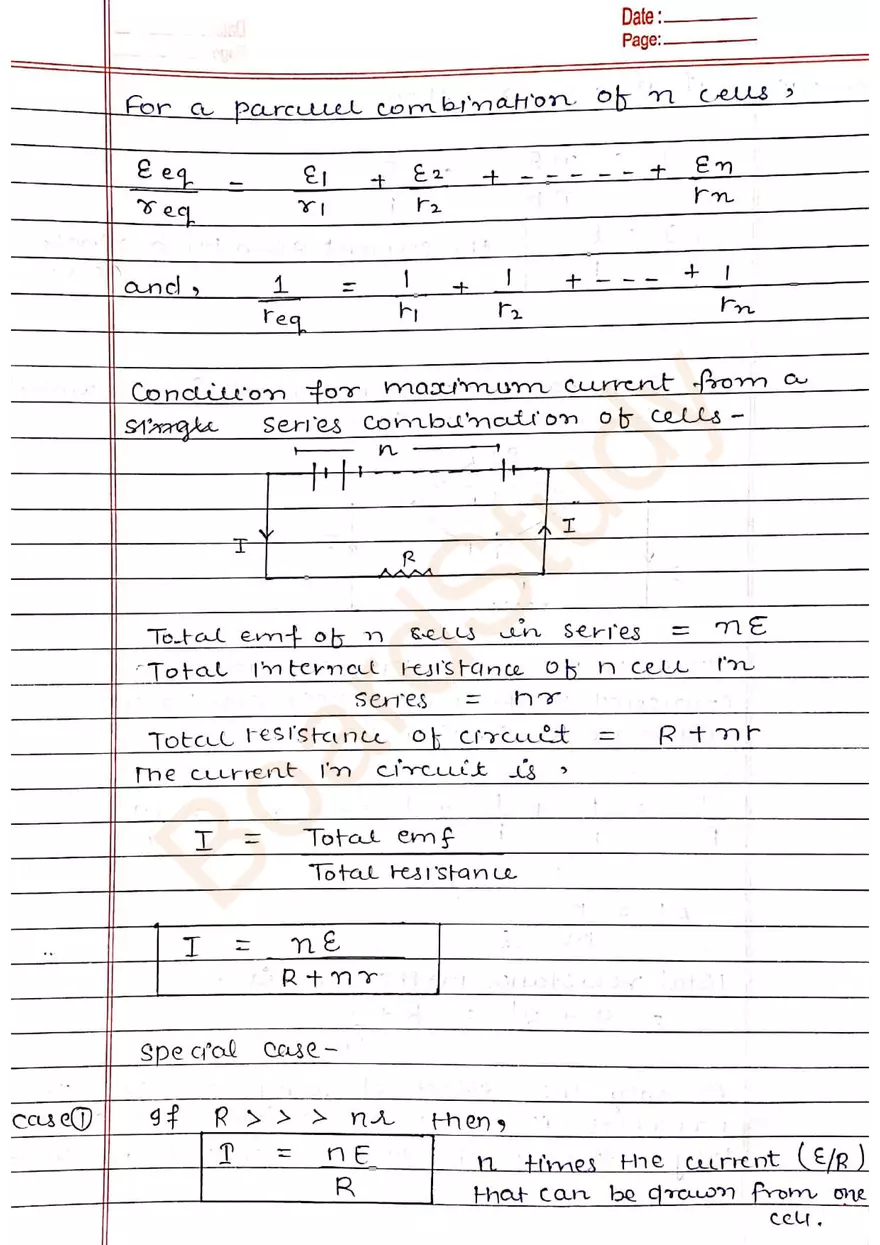 Date :
Page:
For a parallel combination of n cells,
εeq/req = ε1/r1 + ε2/r2 + - - - - - + εn/rn
and, 1/req = 1/r1 + 1/r2 + - - - + 1/rn
Condition for maximum current from a
single series combination of cells-
n
I
I
R
Total emf of n cells in series = nε
Total internal resistance of n cell in
series = nr
Total resistance of circuit = R + nr
The current in circuit is,
I = Total emf / Total resistance
I = nε / R + nr
special case-
case ① If R > > > nr then,
I = nE / R
n times the current (ε/R)
that can be drawn from one
cell.
BoardStudy